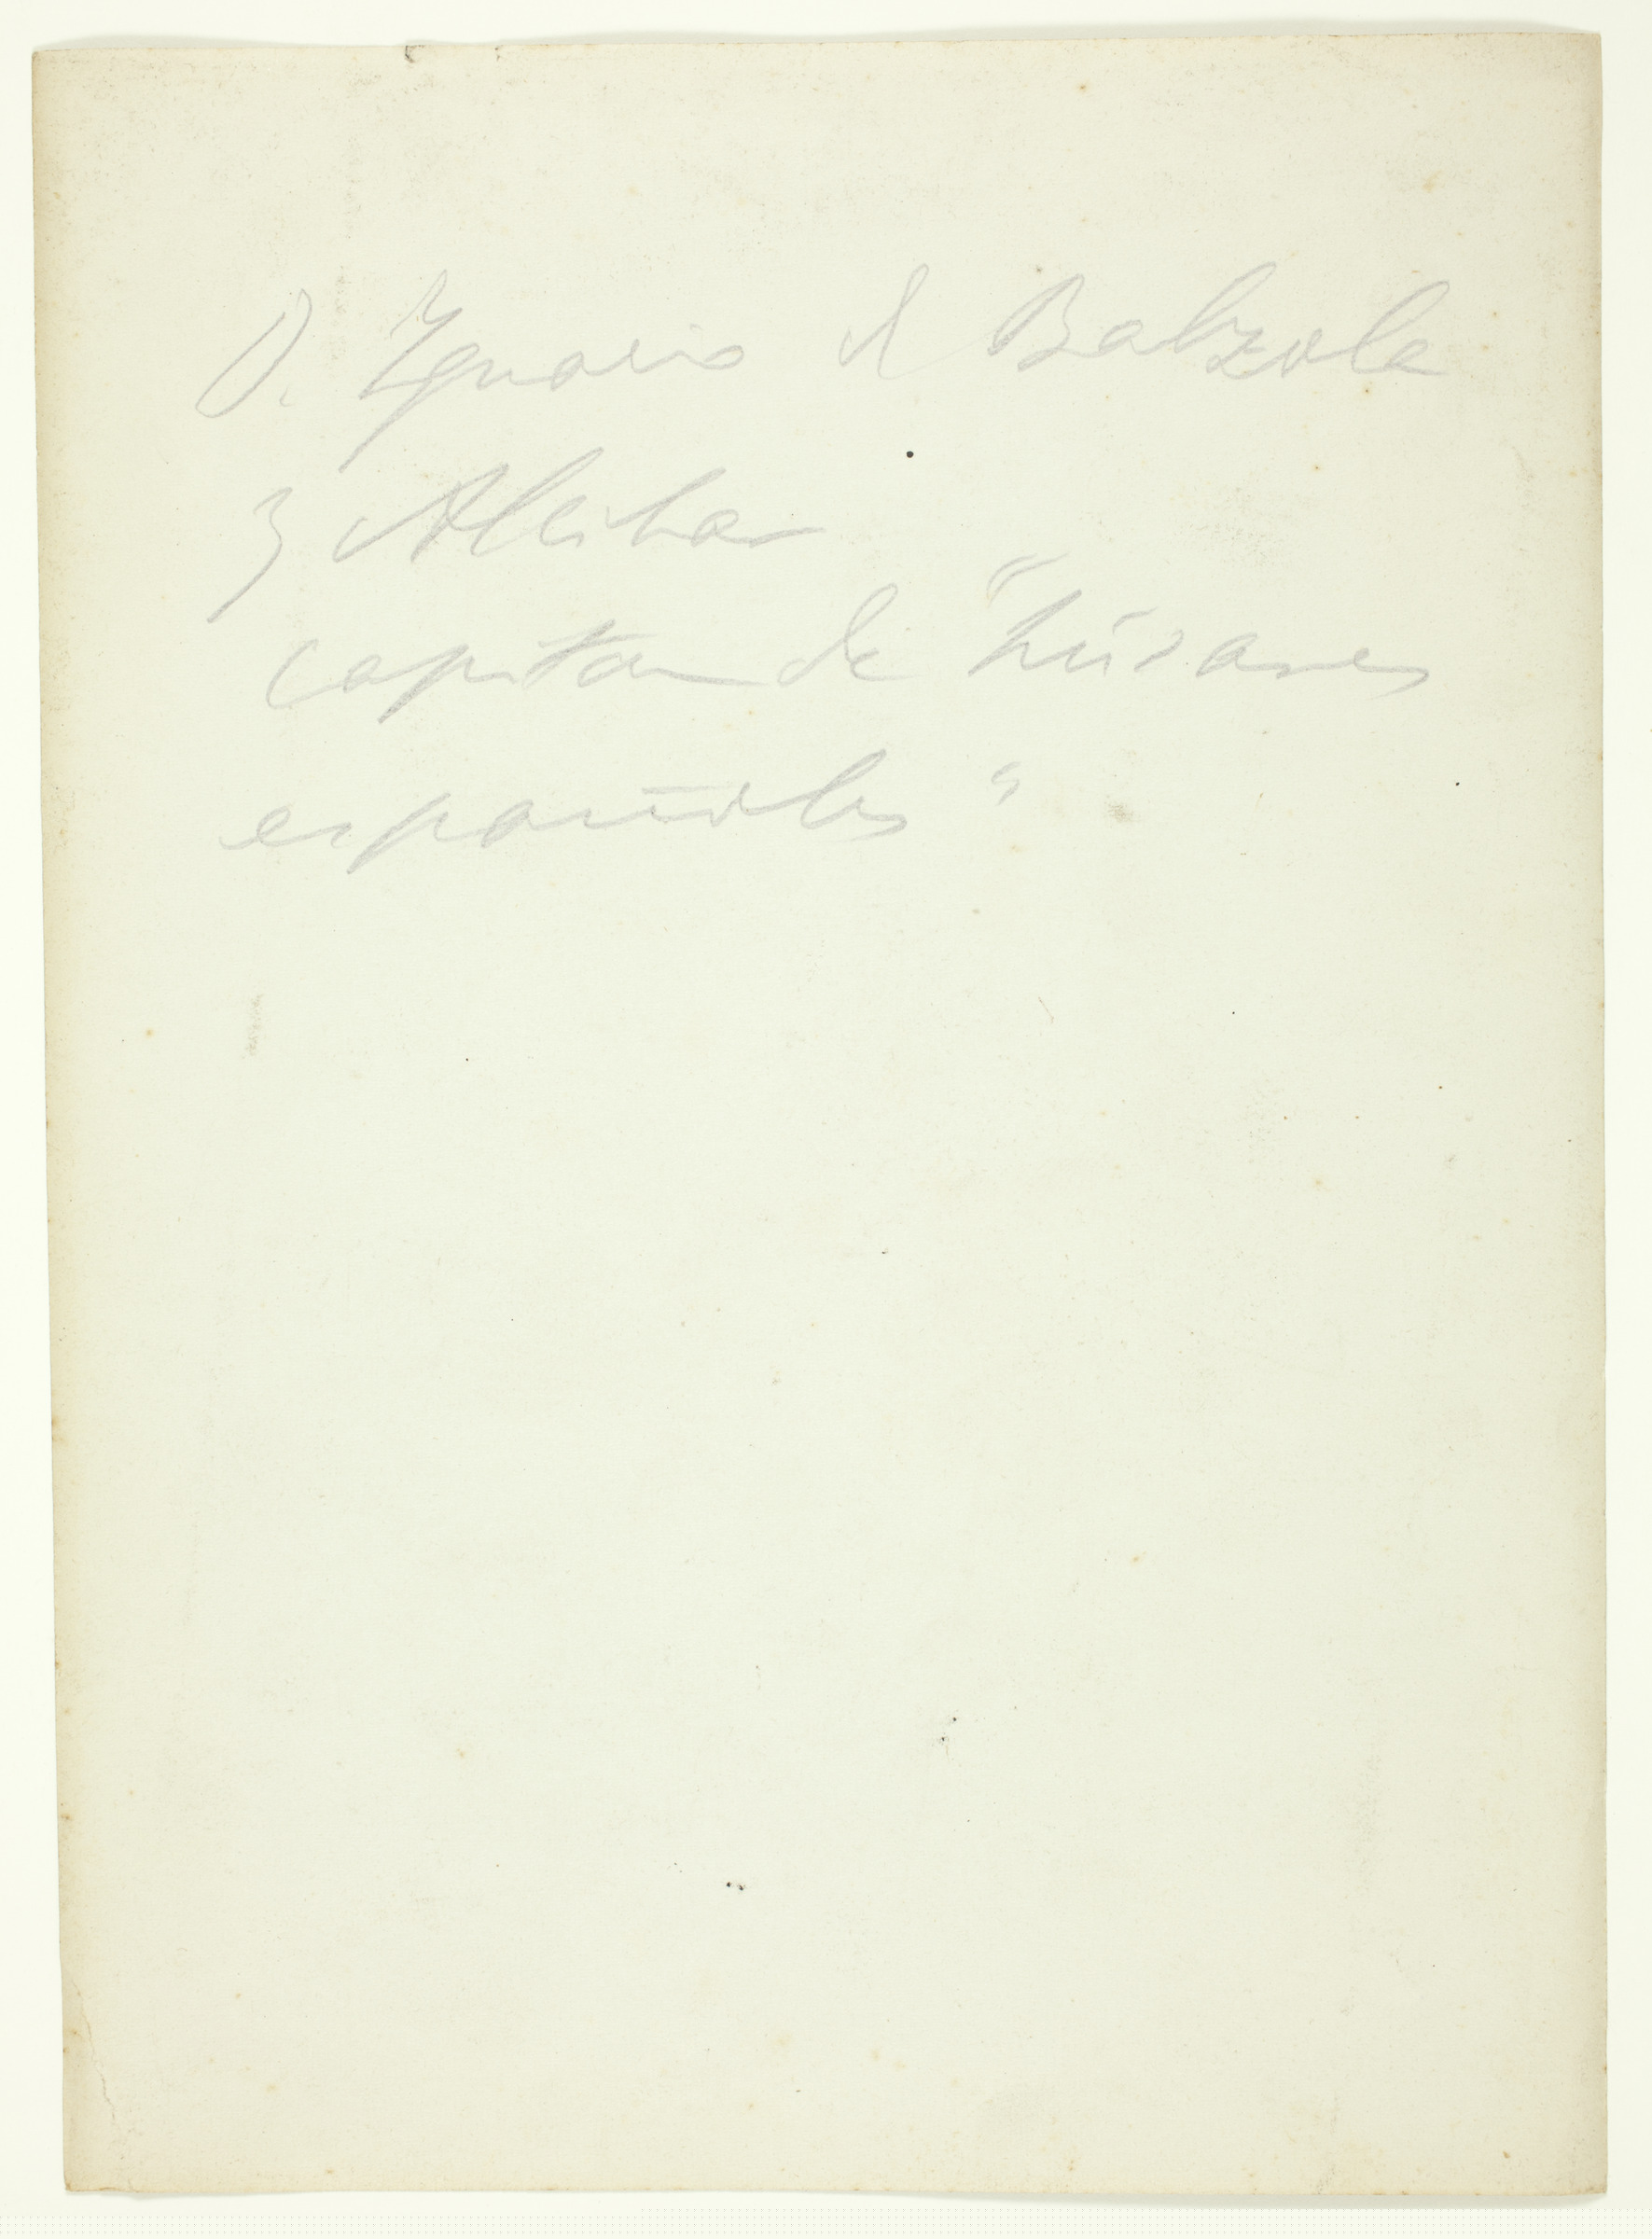 D. Ignacio de Balzola
y Allihar
capitan de "húsares
españoles"